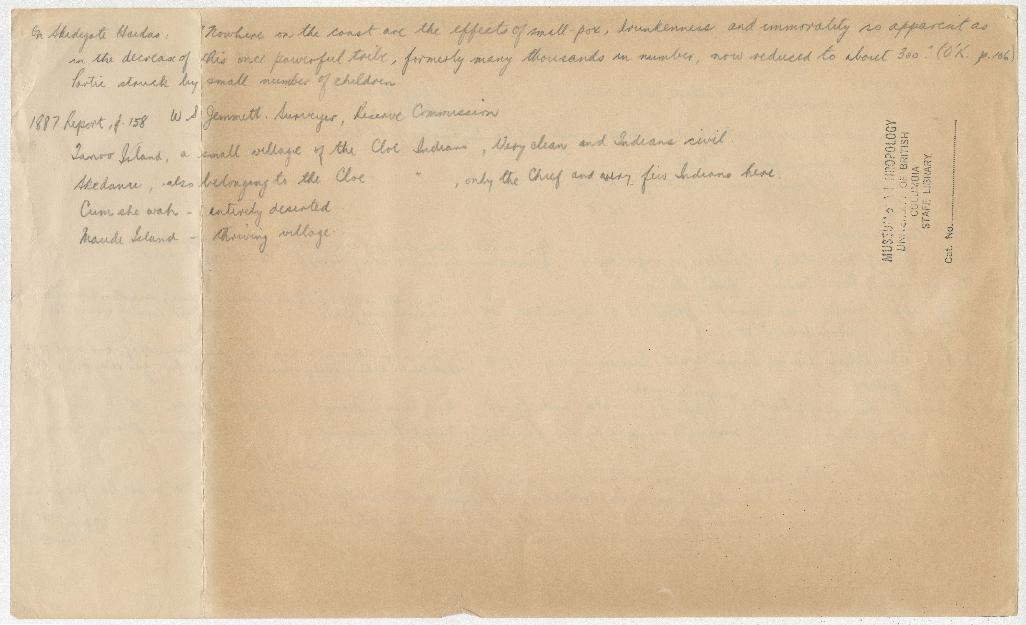 On Skidegate Haidas: "Nowhere on the coast are the effects of small-pox, drunkenness and immorality so apparent as
in the decrease of this once powerful tribe, formerly many thousands in number, now reduced to about 300." (O'R. p.106)
Portie struck by small number of children
1887 Report, p. 158 W S Jemmett. Surveyor, Reserve Commission
Tanoo Island, a small village of the Cloe Indians, Very clean and Indians civil.
Skedance, also belonging to the Cloe " , only the Chief and very few Indians here.
Cum she wah - entirely deserted
Maude Island - thriving village.
MUSEUM OF ANTHROPOLOGY
UNIVERSITY OF BRITISH
COLUMBIA
STAFF LIBRARY
Cat. No.